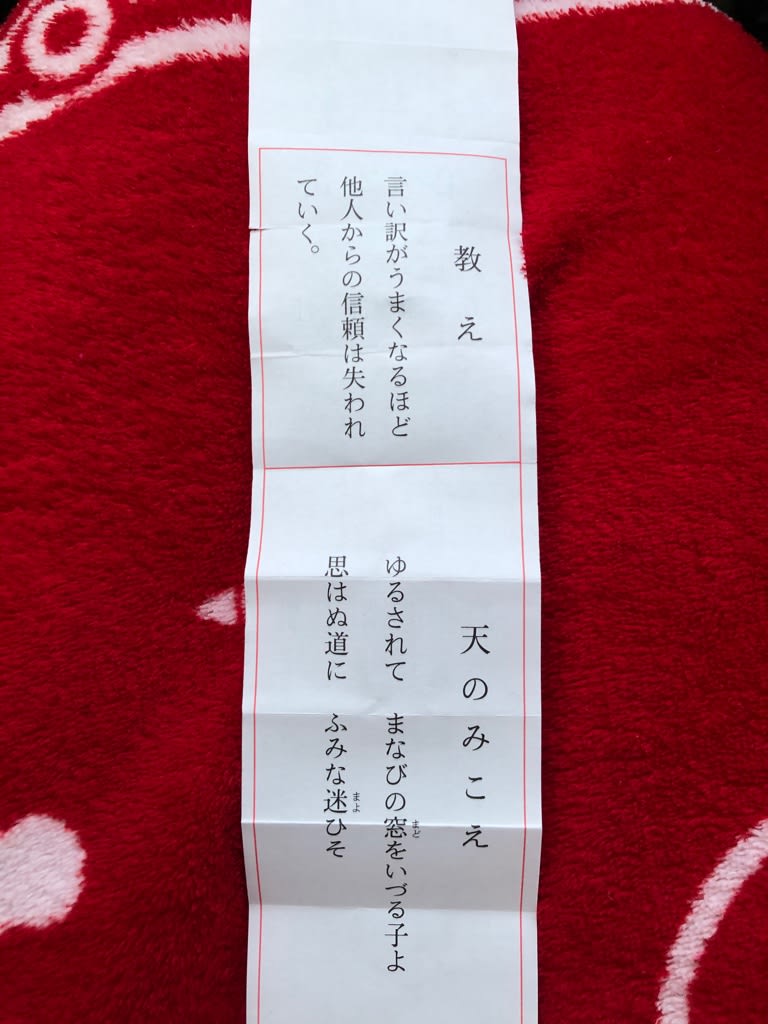 教え
言い訳がうまくなるほど
他人からの信頼は失われ
ていく。
天のみこえ
ゆるされて　まなびの窓をいづる子よ
まど
思はぬ道に　ふみな迷ひそ
まよ